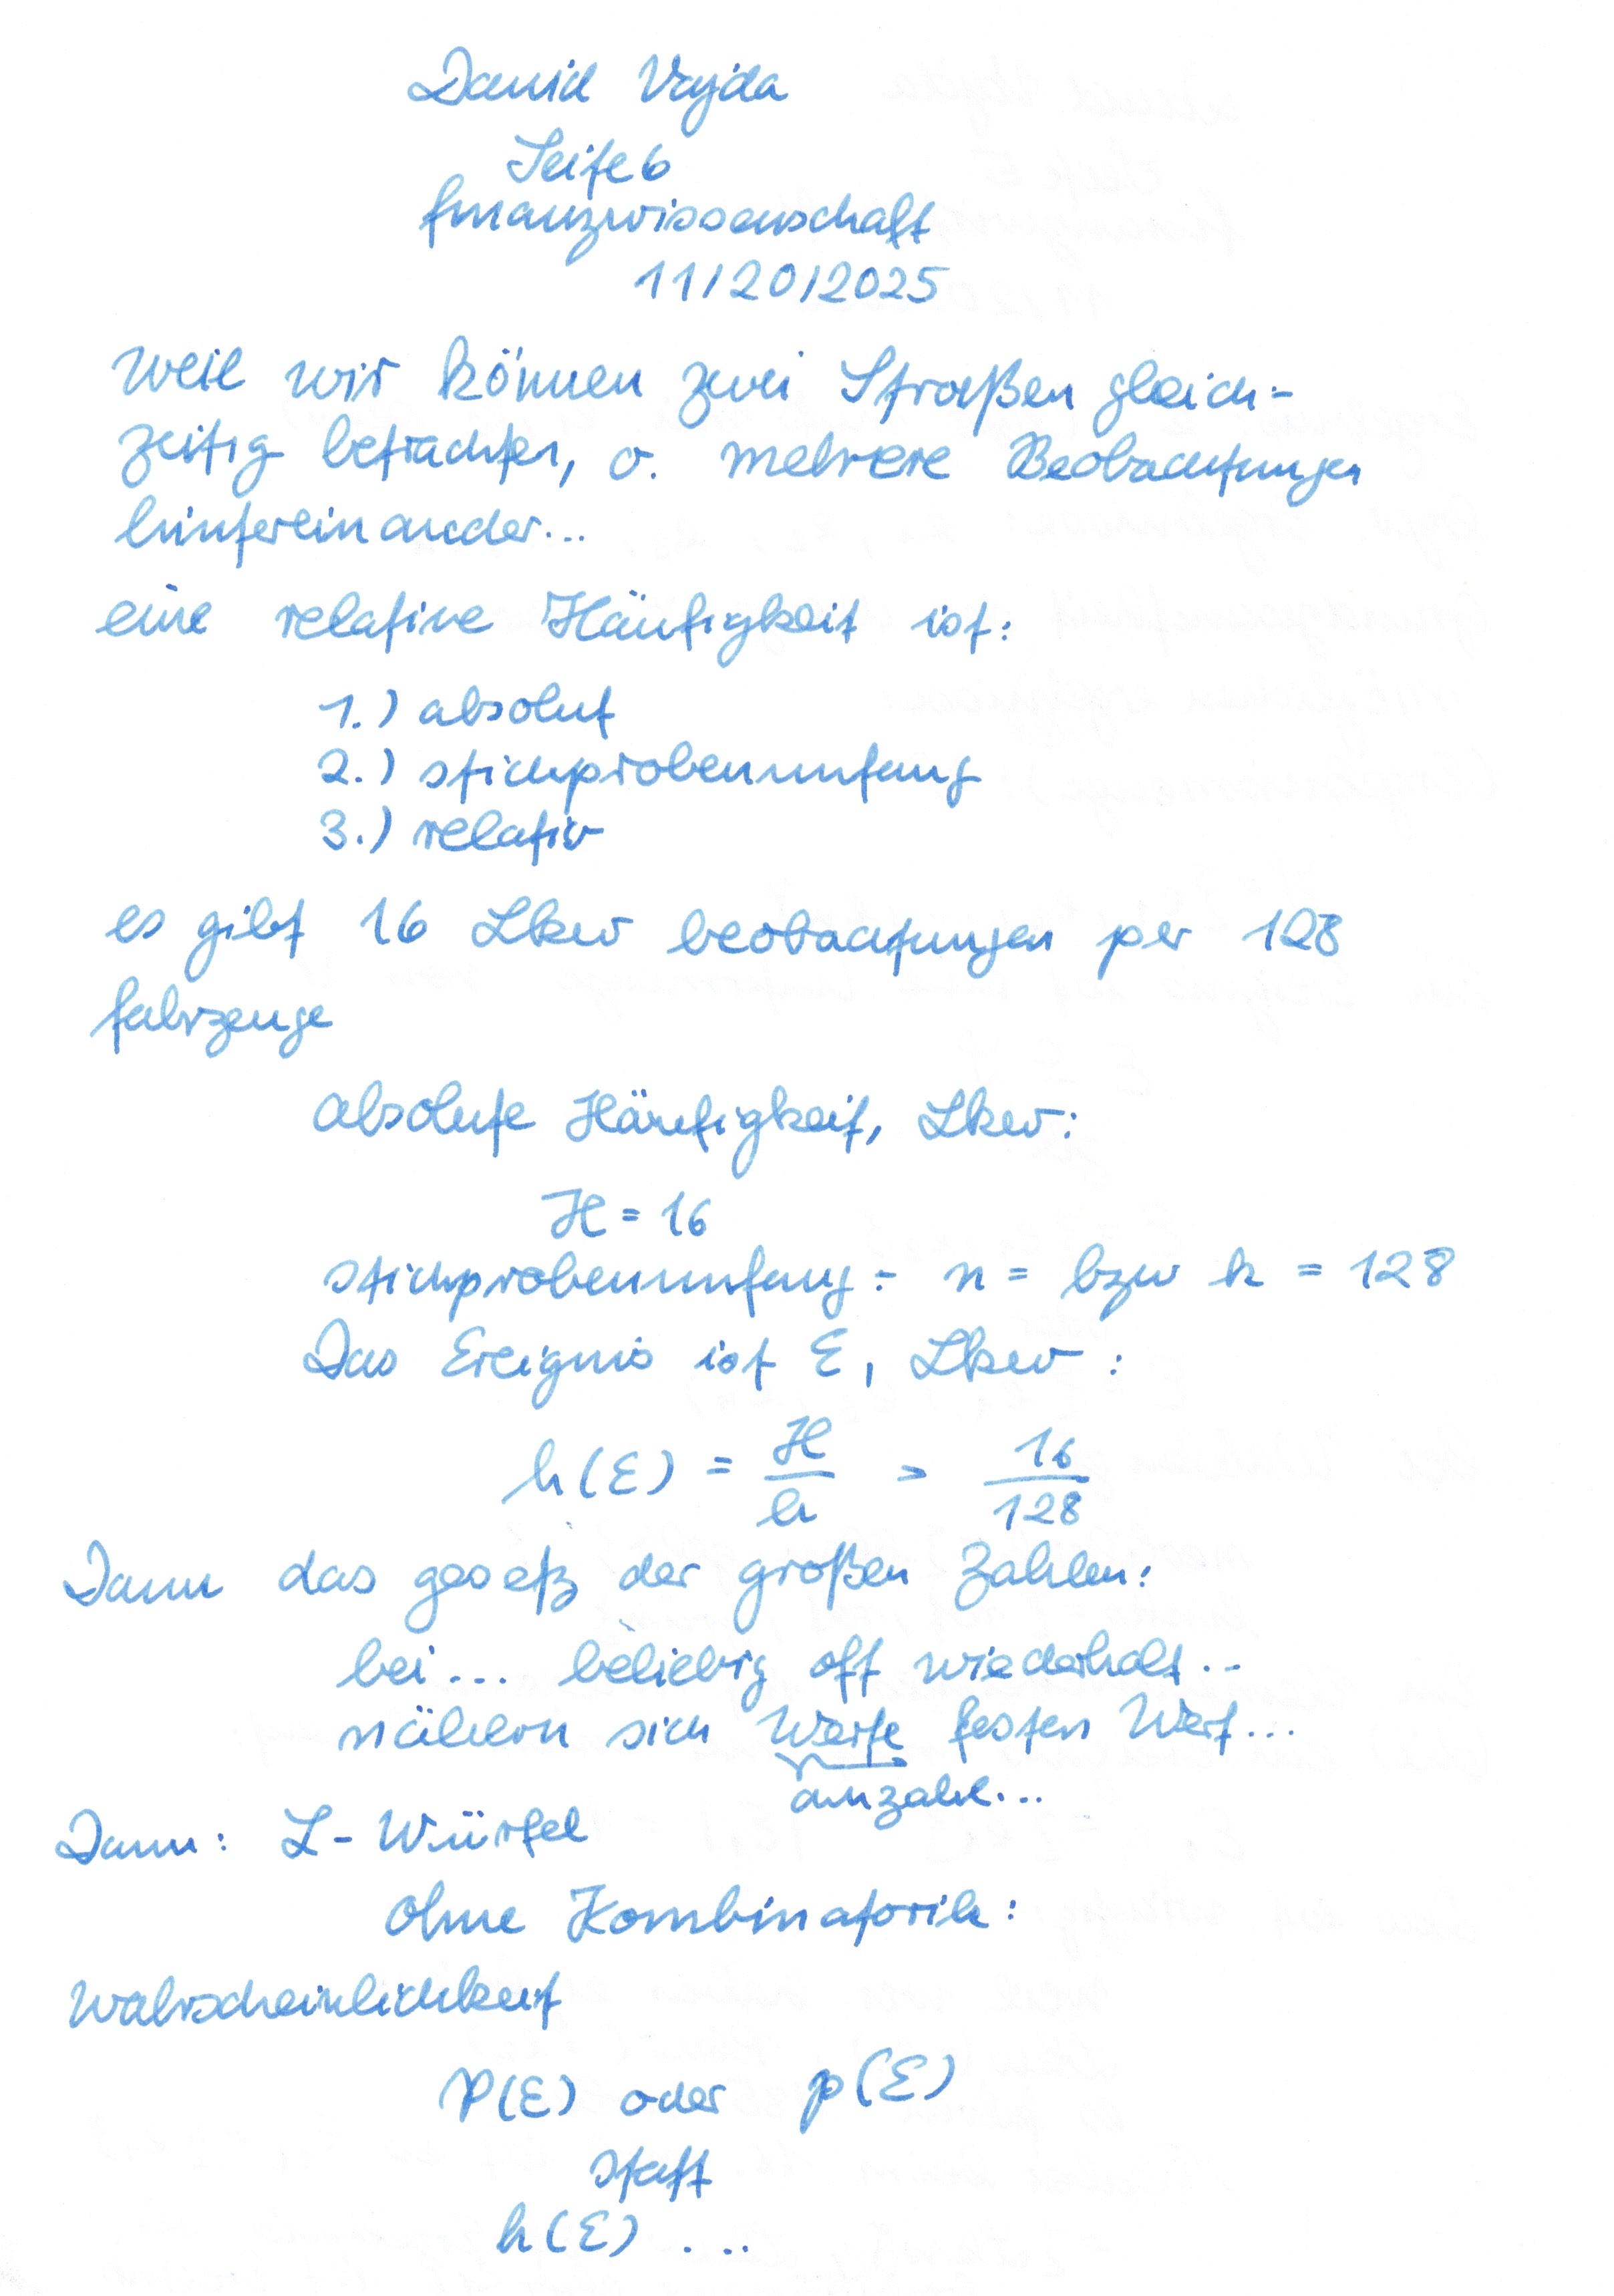 David Vajda
Seite 6
finanzwissenschaft
11/20/2025
Weil wir können zwei Straßen gleich=
zeitig betrachten, o. mehrere Beobachtungen
hintereinander...
eine relative Häufigkeit ist:
1.) absolut
2.) stichprobenumfang
3.) relativ
es gibt 16 Lkw beobachtungen per 128
fahrzeuge
absolute Häufigkeit, Lkw:
H = 16
stichprobenumfang: n = bzw k = 128
Das Ereignis ist E, Lkw:
h(E) = H/k = 16/128
Dann das gesetz der großen Zahlen:
bei... beliebig oft wiederholt..
nähern sich Werte festen Wert...
anzahl...
Dann: L-Würfel
ohne Kombinatorik:
Wahrscheinlichkeit
P(E) oder p(E)
statt
h(E) ...